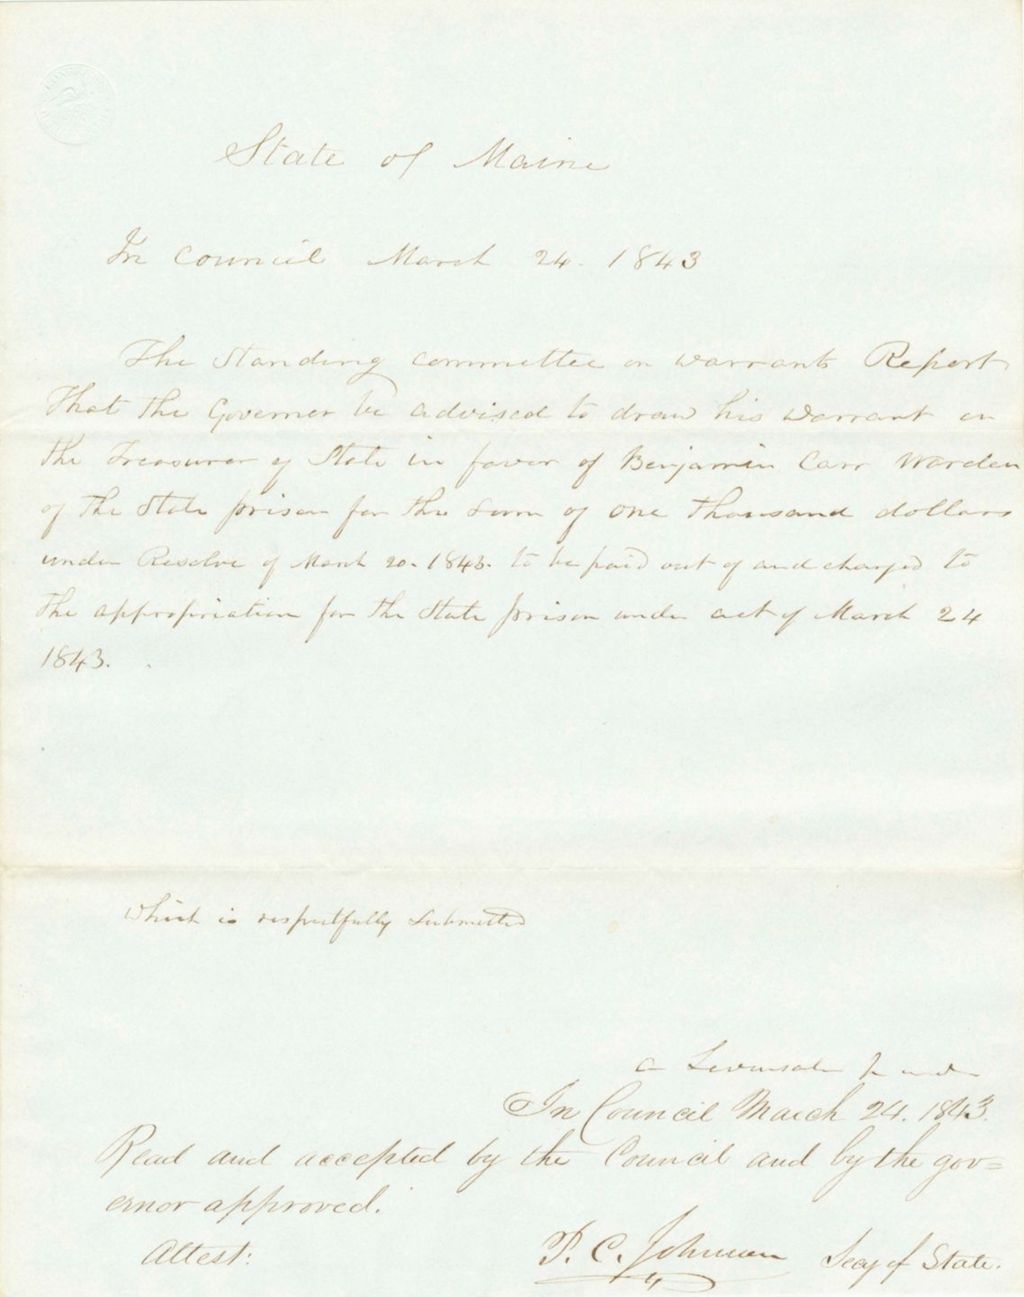 State of Maine
In Council March 24. 1843
The Standing committee on warrants Report
That the Governor be advised to draw his warrant on
the Treasurer of State in favor of Benjamin Carr Warden
of the State prison for the sum of one thousand dollars
under Resolve of March 20. 1843. to be paid out of and charged to
the appropriation for the State prison under act of March 24
1843.
Which is respectfully submitted
In Council March 24. 1843.
Read and accepted by the Council and by the gov=
ernor approved.
Attest:
P. C. Johnson Secy of State.